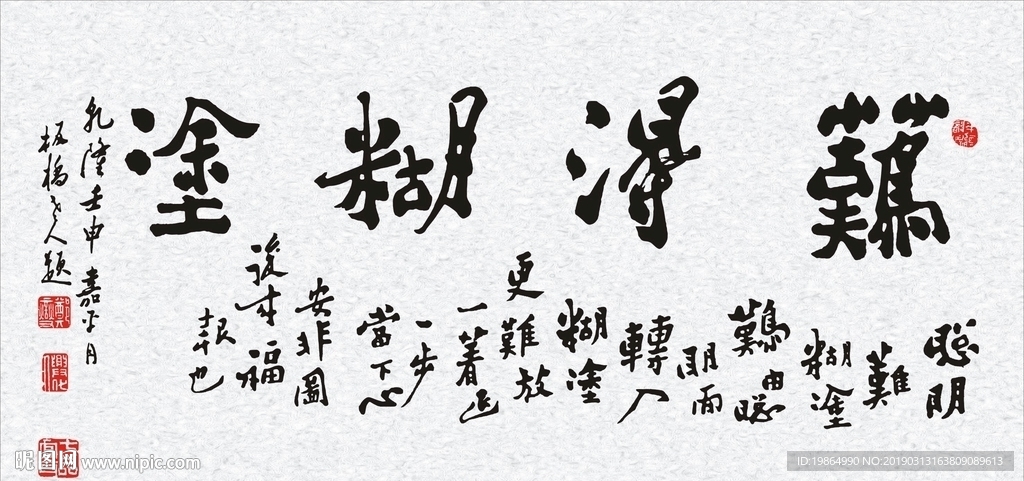 難得糊塗
聰明
難
糊塗
難由聰
明而
轉入
糊塗
更難放
一著退
一步
當下心
安非圖
後來福
報也
乾隆壬申嘉平月
板橋老人題
昵图网 www.nipic.com
ID:19864990 NO:20190313163809089613